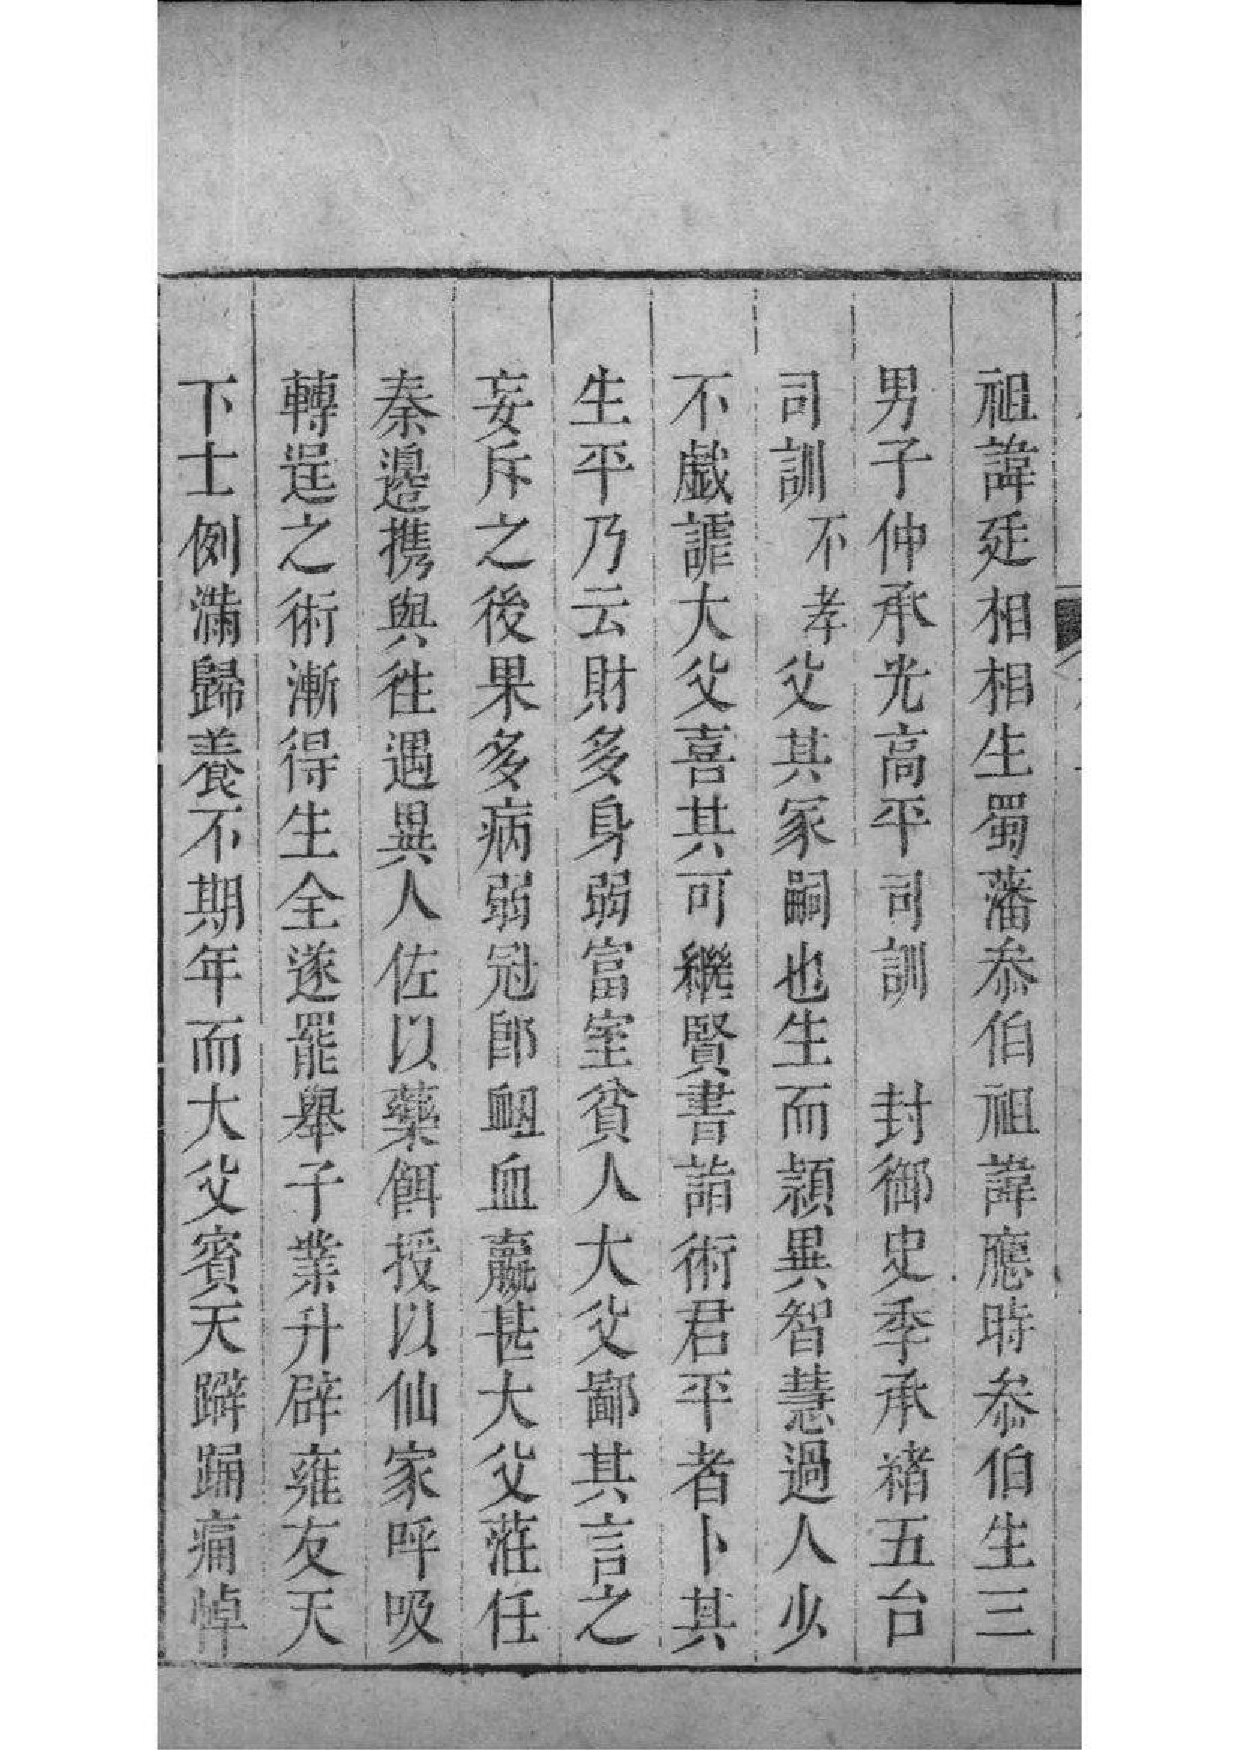 祖諱廷相相生蜀藩叅伯祖諱應時叅伯生三
男子仲承光高平司訓　封御史季承緒五台
司訓不孝父其冢嗣也生而頴異智慧過人少
不戲謔大父喜其可繼賢書詣術君平者卜其
生平乃云財多身弱富室貧人大父鄙其言之
妄斥之後果多病弱冠卽衂血羸甚大父蒞任
秦邊携與徃遇異人佐以藥餌授以仙家呼吸
轉逞之術漸得生全遂罷舉子業升辟雍友天
下士例滿歸養不期年而大父賓天躃踊痛悼